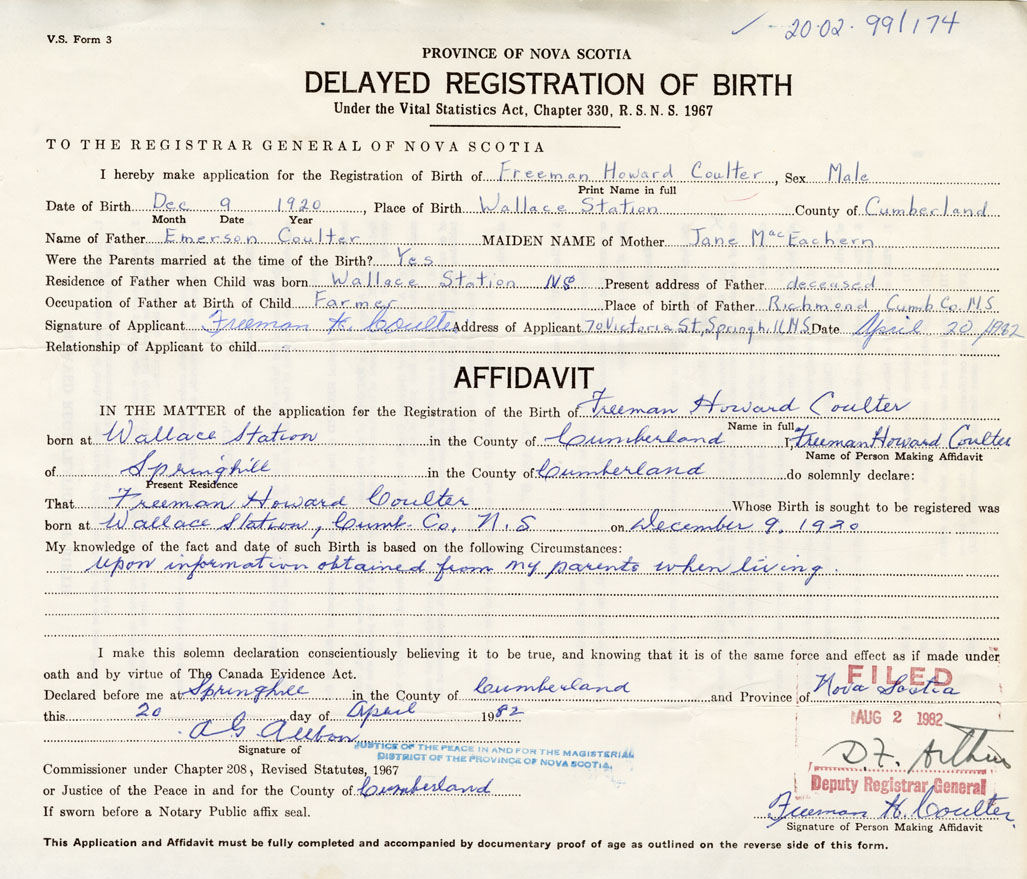 20·02· 99/174
V.S. Form 3
PROVINCE OF NOVA SCOTIA
DELAYED REGISTRATION OF BIRTH
Under the Vital Statistics Act, Chapter 330, R.S.N.S. 1967
TO THE REGISTRAR GENERAL OF NOVA SCOTIA
I hereby make application for the Registration of Birth of Freeman Howard Coulter, Sex Male
Print Name in full
Date of Birth Dec 9 1920, Place of Birth Wallace Station County of Cumberland
Month Date Year
Name of Father Emerson Coulter MAIDEN NAME of Mother Jane MacEachern
Were the Parents married at the time of the Birth? Yes
Residence of Father when Child was born Wallace Station NS Present address of Father deceased
Occupation of Father at Birth of Child Farmer Place of birth of Father Richmond Cumb Co. N.S.
Signature of Applicant Freeman H. Coulter Address of Applicant 70 Victoria St, Springhill N.S Date April 20/1982
Relationship of Applicant to child
AFFIDAVIT
IN THE MATTER of the application for the Registration of the Birth of Freeman Howard Coulter
Name in full
born at Wallace Station in the County of Cumberland I, Freeman Howard Coulter
Name of Person Making Affidavit
of Springhill in the County of Cumberland do solemnly declare:
Present Residence
That Freeman Howard Coulter Whose Birth is sought to be registered was
born at Wallace Station, Cumb. Co. N.S on December 9, 1920
My knowledge of the fact and date of such Birth is based on the following Circumstances:
upon information obtained from my parents when living.
I make this solemn declaration conscientiously believing it to be true, and knowing that it is of the same force and effect as if made under
oath and by virtue of The Canada Evidence Act.
FILED
Declared before me at Springhill in the County of Cumberland and Province of Nova Scotia
this 20 day of April 1982
AUG 2 1982
A G
Signature of
JUSTICE OF THE PEACE IN AND FOR THE MAGISTERIAL
DISTRICT OF THE PROVINCE OF NOVA SCOTIA.
D.F. Arthur
Commissioner under Chapter 208, Revised Statutes, 1967
Deputy Registrar General
or Justice of the Peace in and for the County of Cumberland
Freeman H. Coulter
If sworn before a Notary Public affix seal.
Signature of Person Making Affidavit
This Application and Affidavit must be fully completed and accompanied by documentary proof of age as outlined on the reverse side of this form.